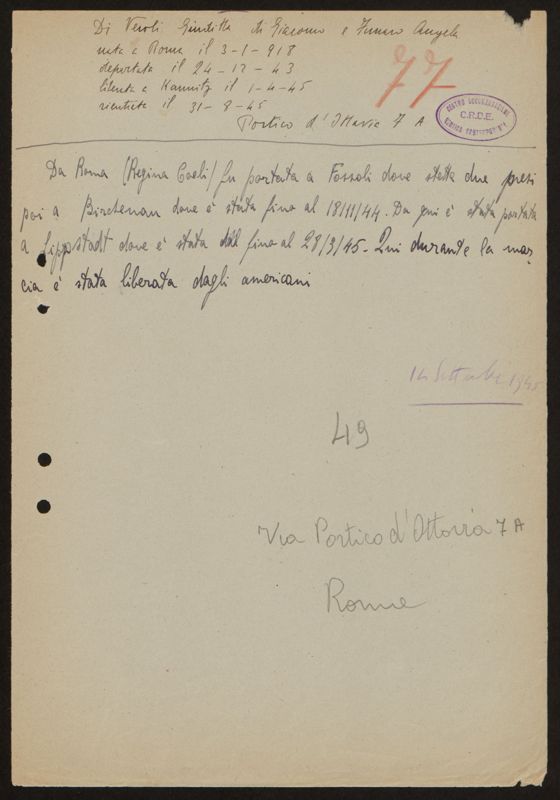 Di Veroli Giuditta di Giacomo e Funaro Angela
nata a Roma il 3-1-918
deportata il 24-12-43
liberata a Kaunitz il 1-4-45
rientrata il 31-8-45
Portico d'Ottavia 7 A
77
C.R.D.E.
Da Roma (Regina Coeli) fu portata a Fossoli dove stette due mesi
poi a Birchenau dove è stata fino al 18/11/44. Da qui è stata portata
a Lippstadt dove è stata fino al 28/3/45. Qui durante la mar-
cia è stata liberata dagli americani
14 Settembre 1945
49
Via Portico d'Ottavia 7A
Roma